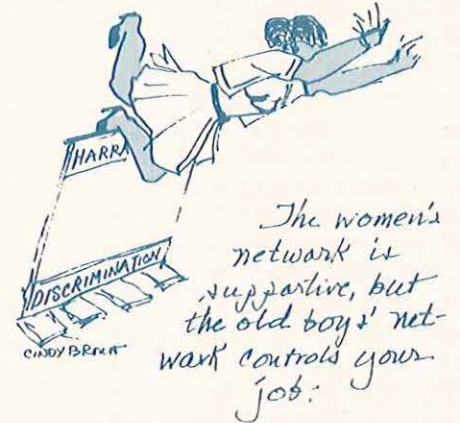 HARRA
DISCRIMINATION
CINDY
The women's
network is
supportive, but
the old boys' net-
work controls your
job: